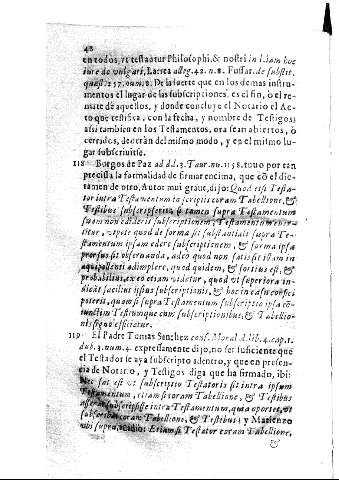 48
en todos, vt testātur Philosophi, & nostri in l.iam hoc
iure de vulgari, Lacrea alleg. 42. n. 8. Fussar. de substit.
quæst. 257. num. 8. De la suerte que en los demas instru-
mentos el lugar de las subscripciones es el fin, ò el re-
mate de aquellos, y donde concluye el Notario el Ac-
to que testifica, con la fecha, y nombre de Testigos;
assi tambien en los Testamentos, ora sean abiertos, ò
cerrados, deceràn del mismo modo, y en el mismo lu-
gar subscriuirse.
118 Burgos de Paz ad dd. 3. Taur. nu. 1158. tuuo por tan
precissa la formalidad de firmar encima, que cō el dic-
tamen de otro, Autor mui graue, dijo: Quod etsi Testa-
tor intra Testamentum in scriptis coram Tabellione, &
Testibus subscripserit, si tamen supra Testamentum
suum non ediderit subscriptionem Testamentum
vitur, vtpote quod de forma sit substantiali supra Te-
stamentum ipsam edere subscriptionem, & forma ipsa
prorsus sit obseruanda, adeo quod non satis sit illam in
aquipollenti adimplere, quod quidem, & fortius est, &
probabilius, ex eo etiam videtur, quod vt superiora in-
dicāt facilius ipsius subscriptionis, & hoc in casu concept
poterit, quam si supra Testamentum subscriptio ipsa cō-
iunctim Testiumque cum subscriptionibus, & Tabellio-
nis signo efficitur.
119 El Padre Tomàs Sanchez cons. Moral. d. lib. 4. cap. 1.
dub. 3. num. 4. expressamente dijo, no ser suficiente que
el Testador se aya subscripto adentro, y que en presen-
cia de Notario, y Testigos diga que ha firmado, ibi:
Nec sat est vt subscriptio Testatoris sit intra ipsum
Testamentum, etiam si toram Tabellione, & Testibus
asserat se subscripsisse intra Testamentum, quia oportet, vt
subscribat coram Tabellione, & Testibus; y Matienzo
vbi supra, añadio: Etiam si Testator coram Tabellione,
&